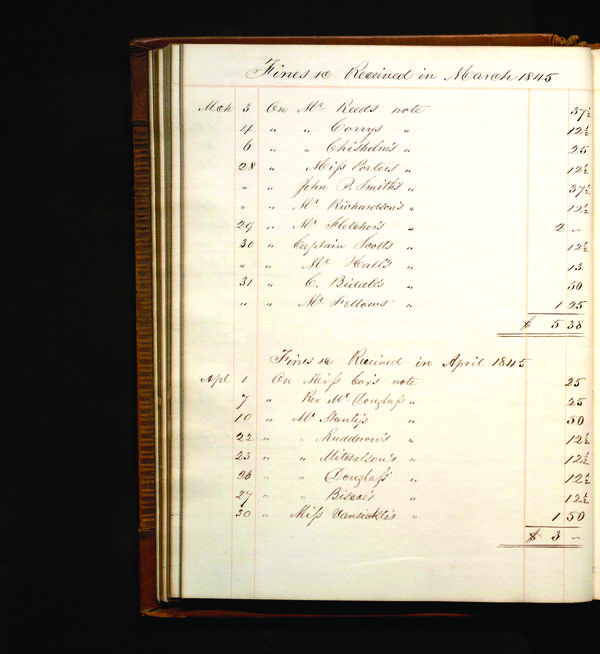 Fines &c Received in March 1845
Mch 3 On Mr Reeds note 37½
4 " " Corrys " 12½
6 " " Chisholm's " 25
28 " Miss Porters " 12½
" " John P. Smiths " 37½
" " Mr Richardson's " 12½
29 " Mr Fletcher's " 2 "
30 " Captain Scott's " 12½
" " Mr Hall's " 13
31 " C. Biddle's " 50
" " Mr Fellows' " 1 25
$ 5 38
Fines &c Received in April 1845
Apl 1 On Miss Cox's note 25
7 " Rev Mr Douglass " 25
10 " Mr Stanly's " 50
22 " " Rudderow's " 12½
23 " " 12½
26 " " Douglass' " 12½
27 " " Biscoe's " 12½
30 " Miss Vansickle's " 1 50
$ 3 "